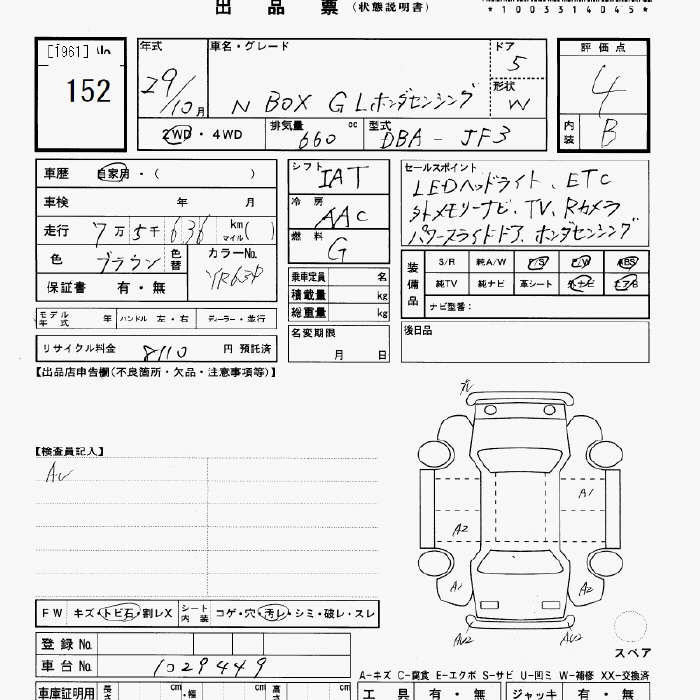 出 品 票 (状態説明書)
*1003314045*
[1961]
152
年式 29/10月
車名・グレード
N BOX G Lホンダセンシング
ドア 5
形状 W
評価点 4
内装 B
2WD・4WD
排気量 cc 660
型式 DBA - JF3
車歴 自家用・( )
車検 年 月
走行 7万5千636 km マイル( )
色 ブラウン 色替
カラーNo. YR63P
保証書 有・無
シフト IAT
冷房 AAC
燃料 G
乗車定員 名
積載量 kg
総重量 kg
セールスポイント
LEDヘッドライト、ETC
外メモリーナビ、TV、Rカメラ
パワースライドドア、ホンダセンシング
装備品
S/R 純A/W P/S P/W ABS
純TV 純ナビ 革シート 外ナビ エアB
ナビ型番:
モデル年式 年 ハンドル 左・右 ディーラー・並行
名変期限 月 日
後日品
リサイクル料金 8110 円 預託済
【出品店申告欄(不良箇所・欠品・注意事項等)】
【検査員記入】
A1
A2
A1
A2
スペア
FW キズ・トビ石・割レX シート内装 コゲ・穴・汚レ・シミ・破レ・スレ
登録No.
車台No. 1029449
A-キズ C-腐食 E-エクボ S-サビ U-凹ミ W-補修 XX-交換済
車庫証明用 長さ cm ・幅 cm 高さ cm
工具 有・無 ジャッキ 有・無